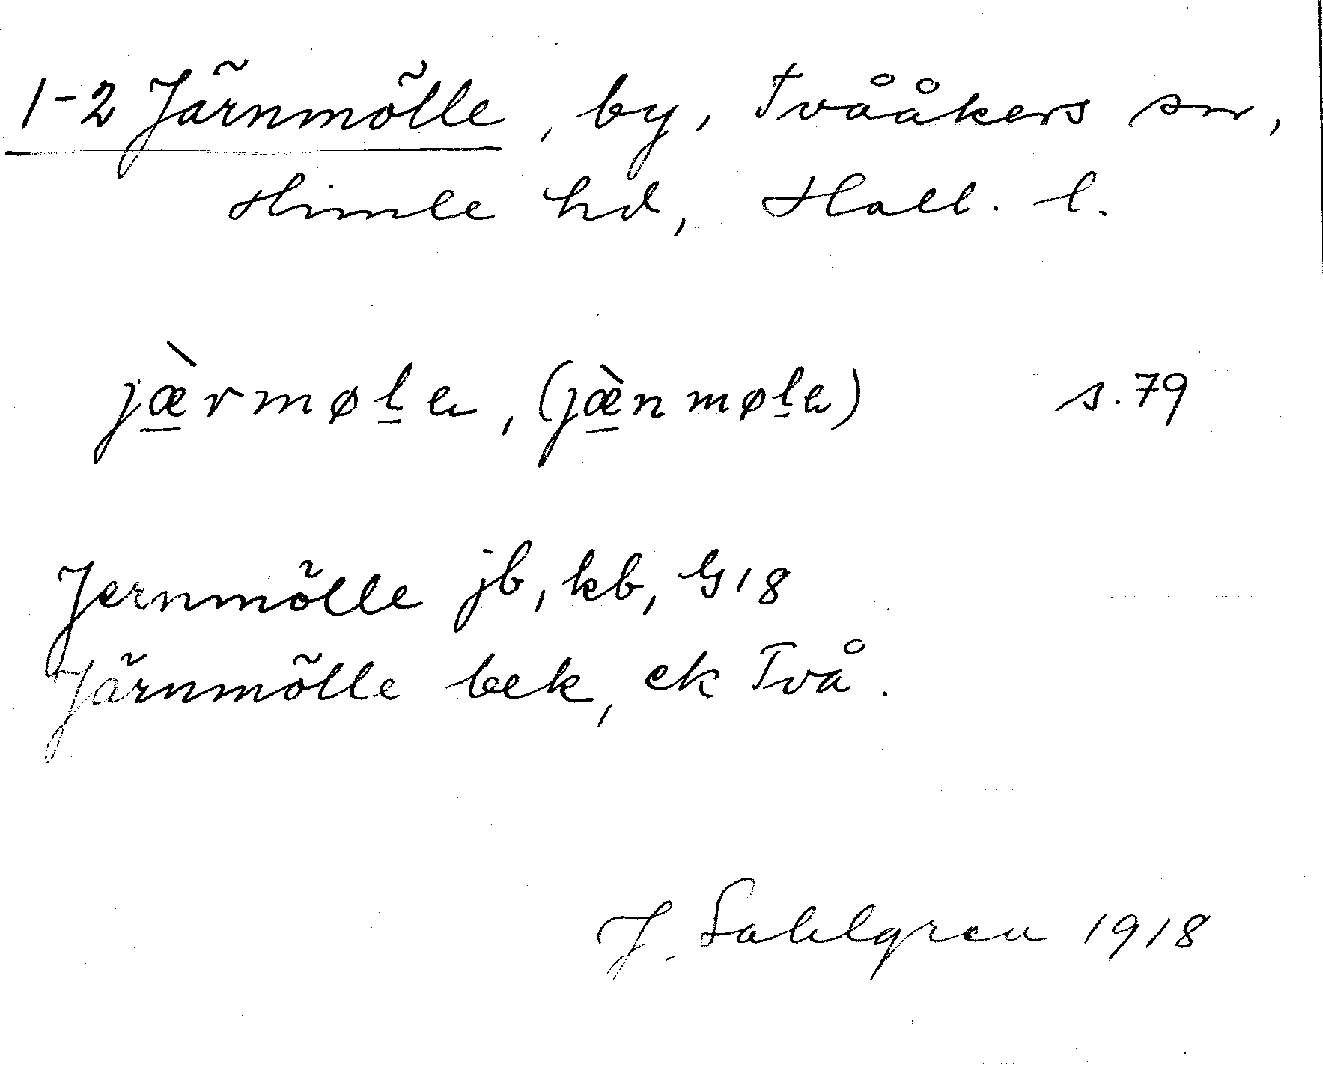 1-2 Järnmölle, by, Tvååkers sn,
Himle hd, Hall. l.
jæ̱̀rmøḻa, (jæ̱̀nmøḻa) s. 79
Jernmölle jb, kb, G18
Järnmölle bek, ek Två.
J. Sahlgren 1918